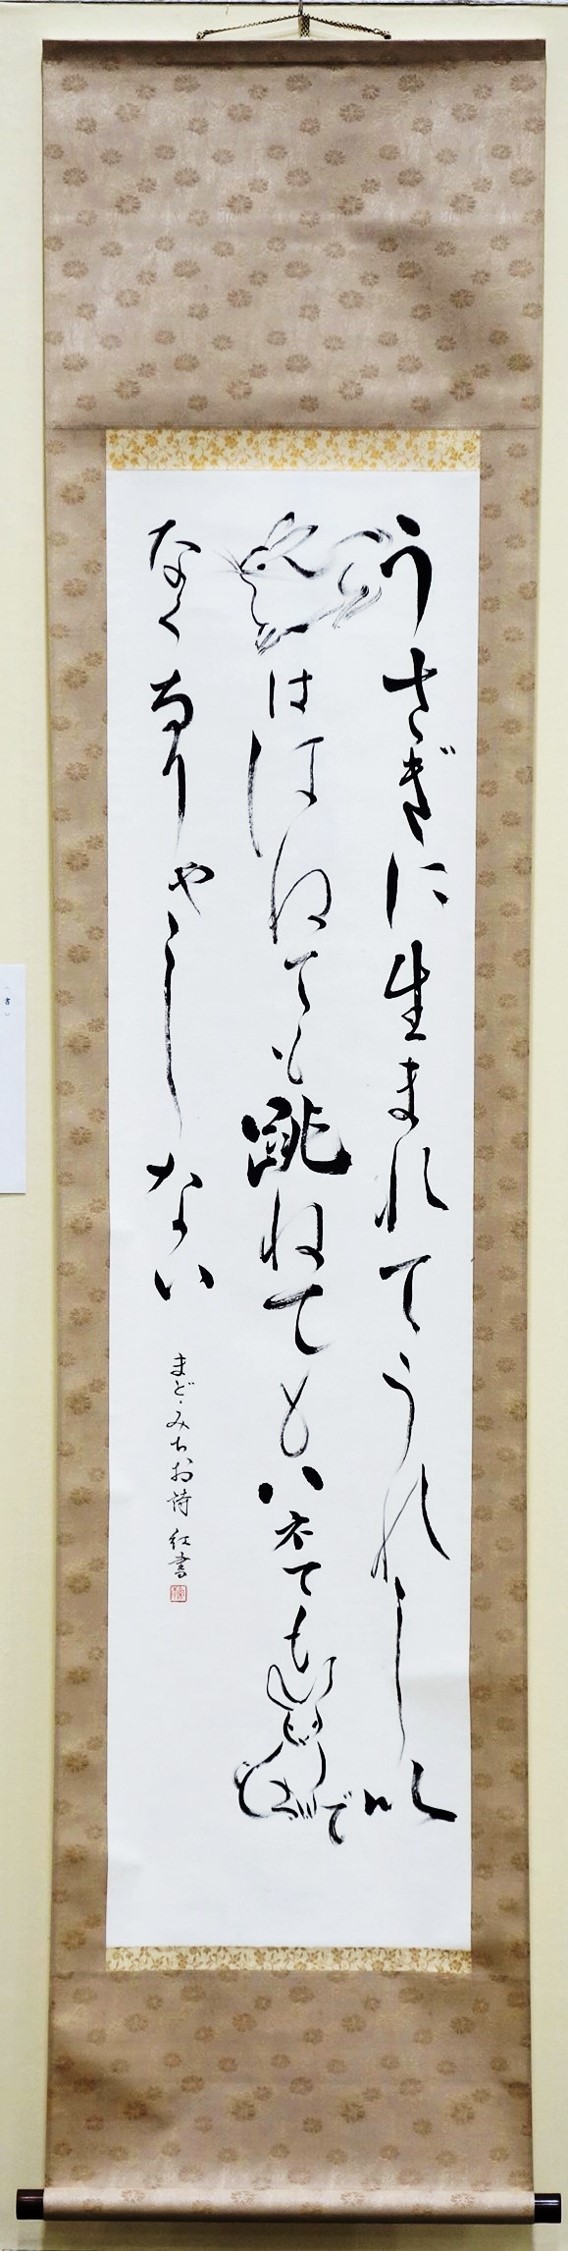 うさぎに生まれてうれしい
ははねても跳ねてもハネてもで
なくなりゃしない
まど・みちお詩 紅書
（書）